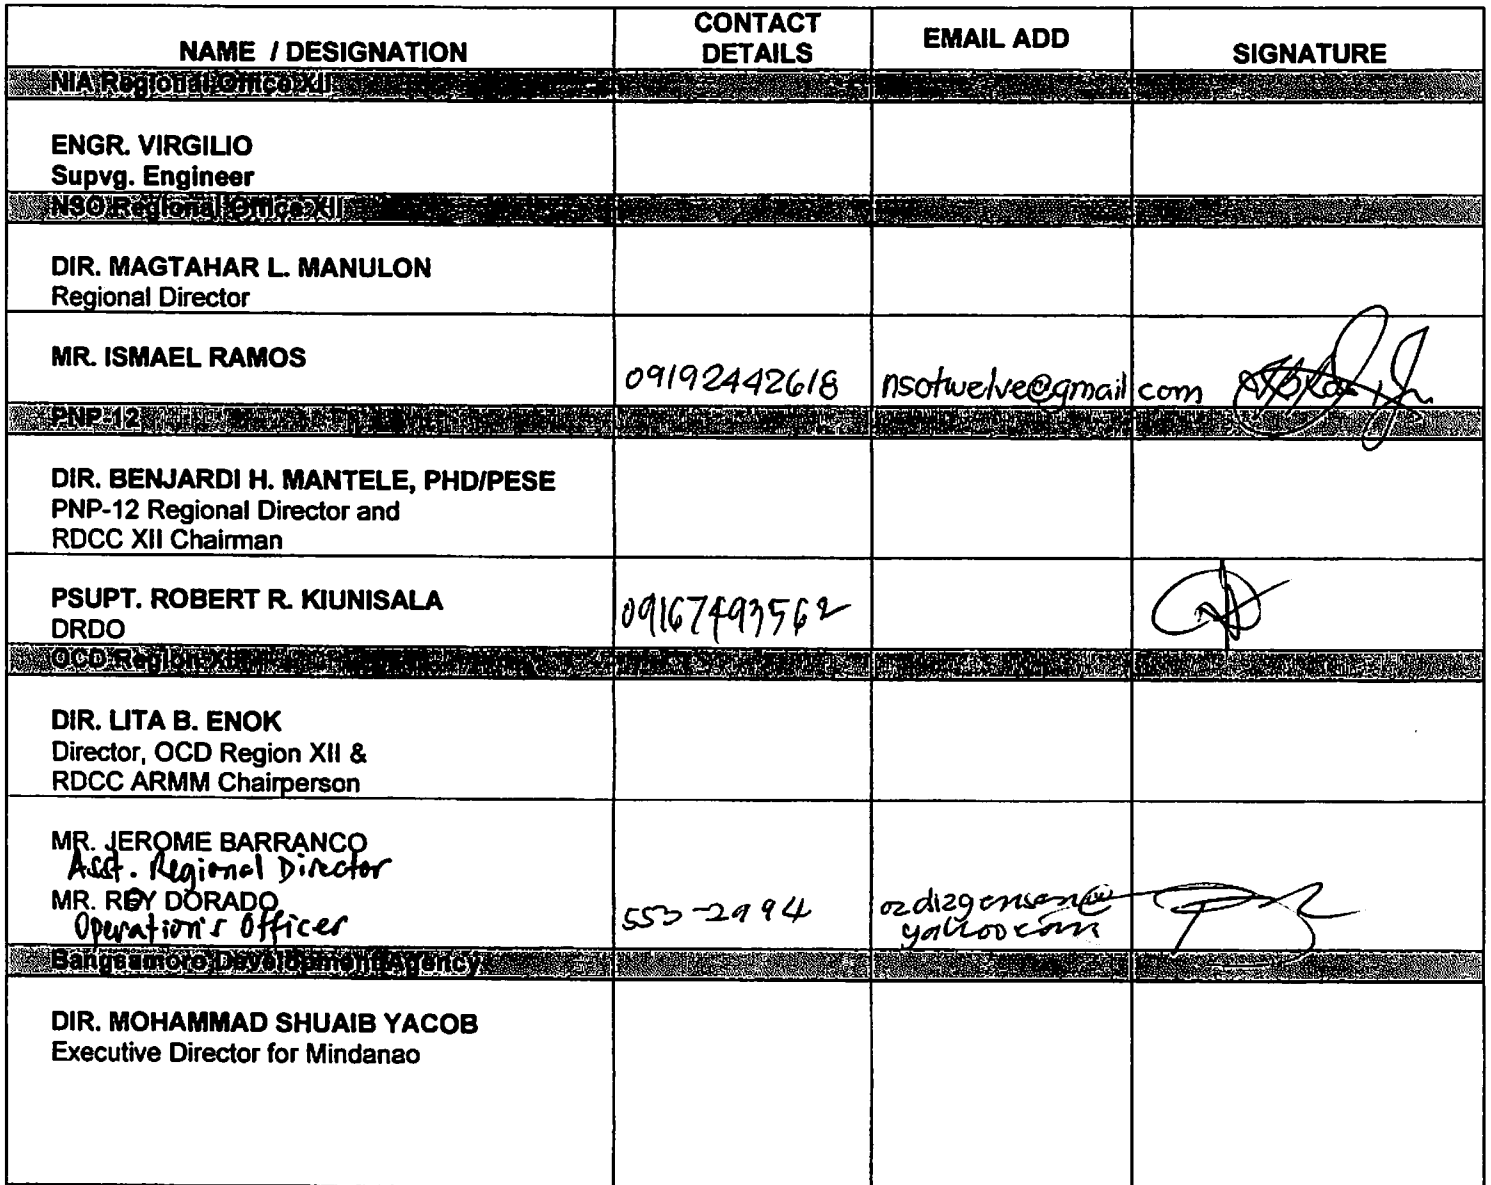 NAME / DESIGNATION
CONTACT
DETAILS
EMAIL ADD
SIGNATURE
NIA Regional Office XII
ENGR. VIRGILIO
Supvg. Engineer
NSO Regional Office XII
DIR. MAGTAHAR L. MANULON
Regional Director
MR. ISMAEL RAMOS
09192442618
nsotwelve@gmail com
PNP-12
DIR. BENJARDI H. MANTELE, PHD/PESE
PNP-12 Regional Director and
RDCC XII Chairman
PSUPT. ROBERT R. KIUNISALA
DRDO
09167493562
OCD Region XII
DIR. LITA B. ENOK
Director, OCD Region XII &
RDCC ARMM Chairperson
MR. JEROME BARRANCO
Asst. Regional Director
MR. REY DORADO
Operation's Officer
553-2994
yahoo.com
Bangsamoro Development Agency
DIR. MOHAMMAD SHUAIB YACOB
Executive Director for Mindanao